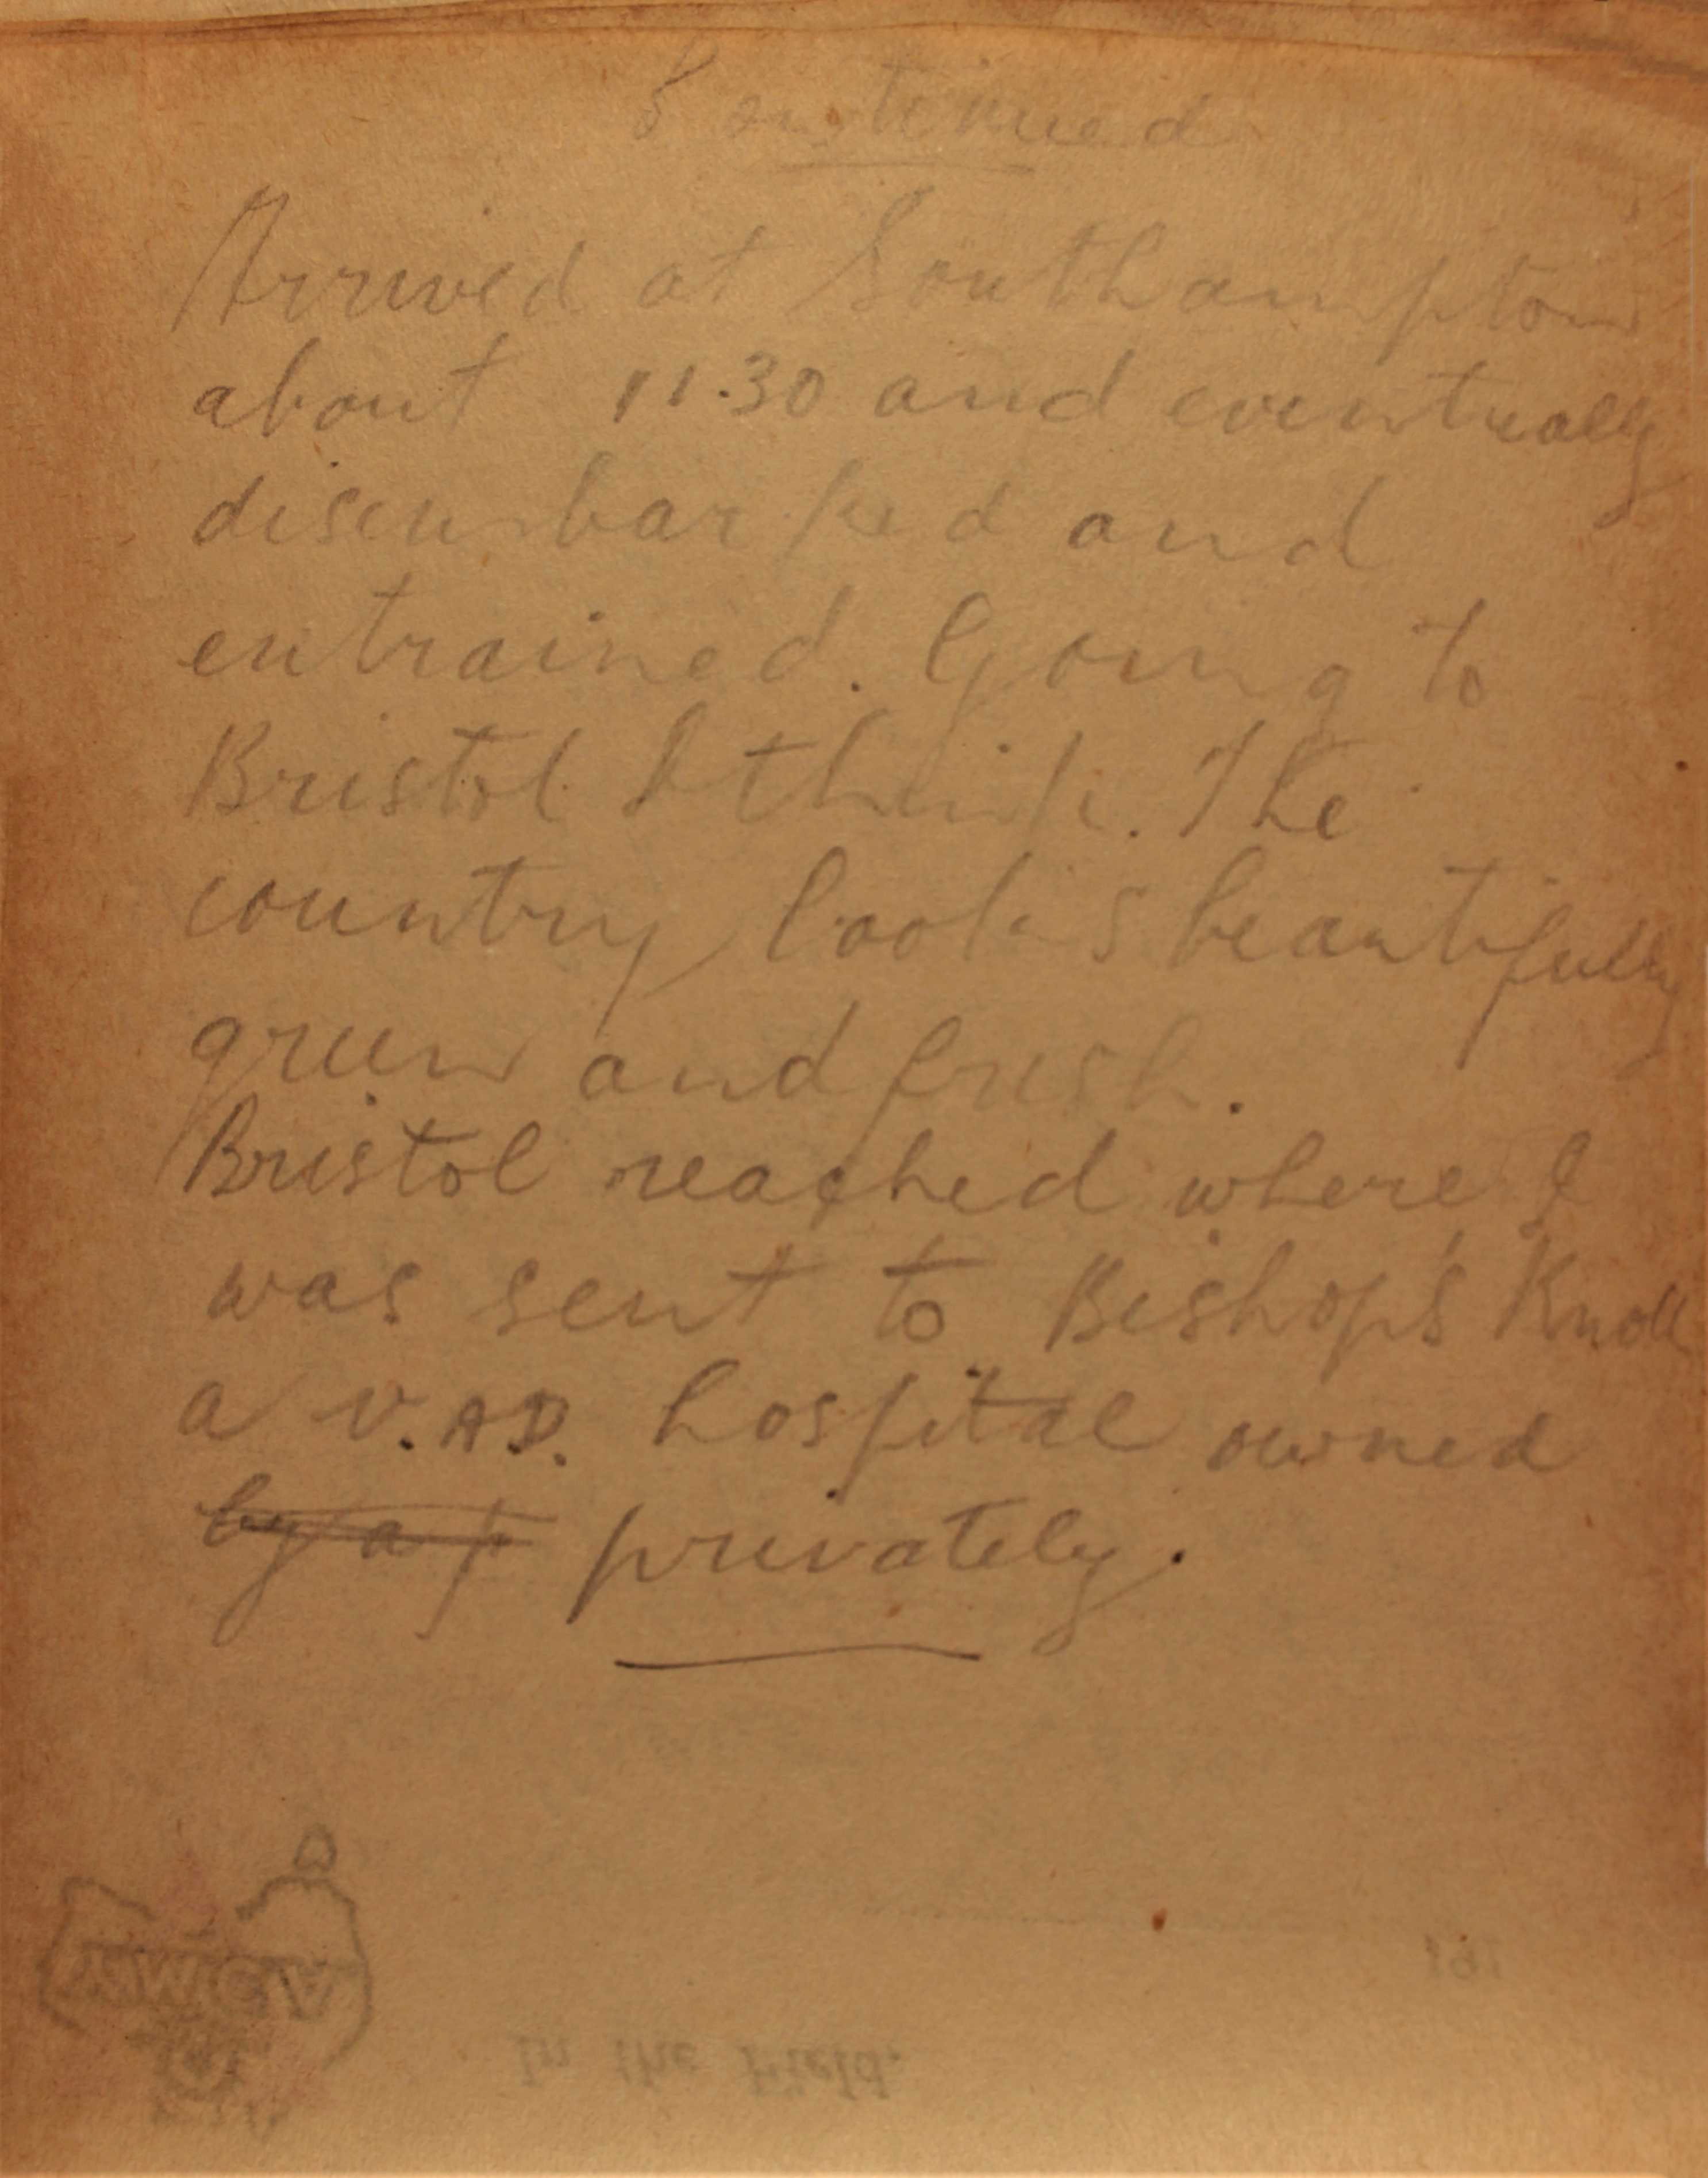 Continued
Arrived at Southampton
about 11.30 and eventually
disembarked and
entrained. Going to
Bristol I think. The
country looks beautifully
green and fresh.
Bristol reached where I
was sent to Bishop's Knoll
a V.A.D. hospital owned
by a p privately.
191
YMCA
In the Field.